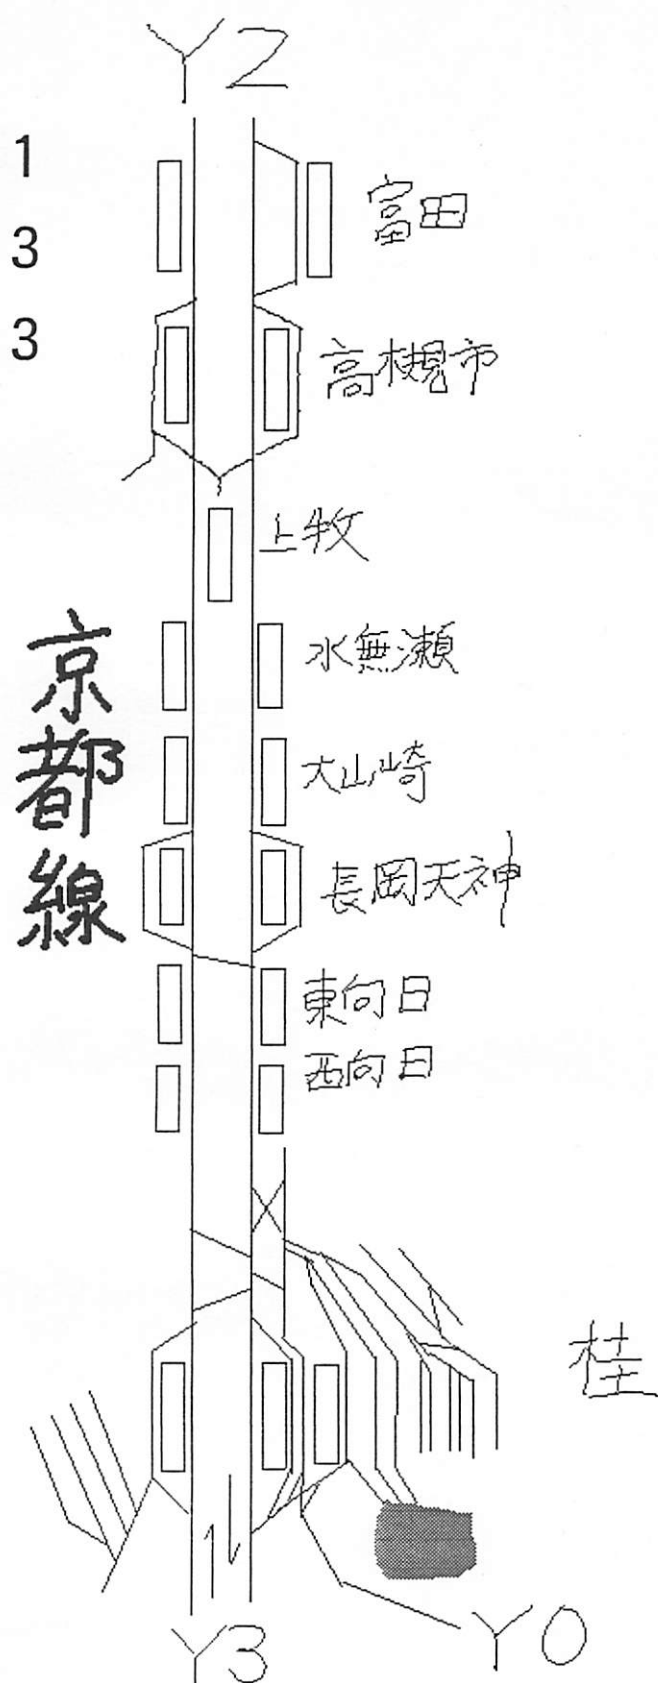 Y2
1
3
3
富田
高槻市
上牧
水無瀬
大山崎
長岡天神
東向日
西向日
京都線
桂
Y3
Y0